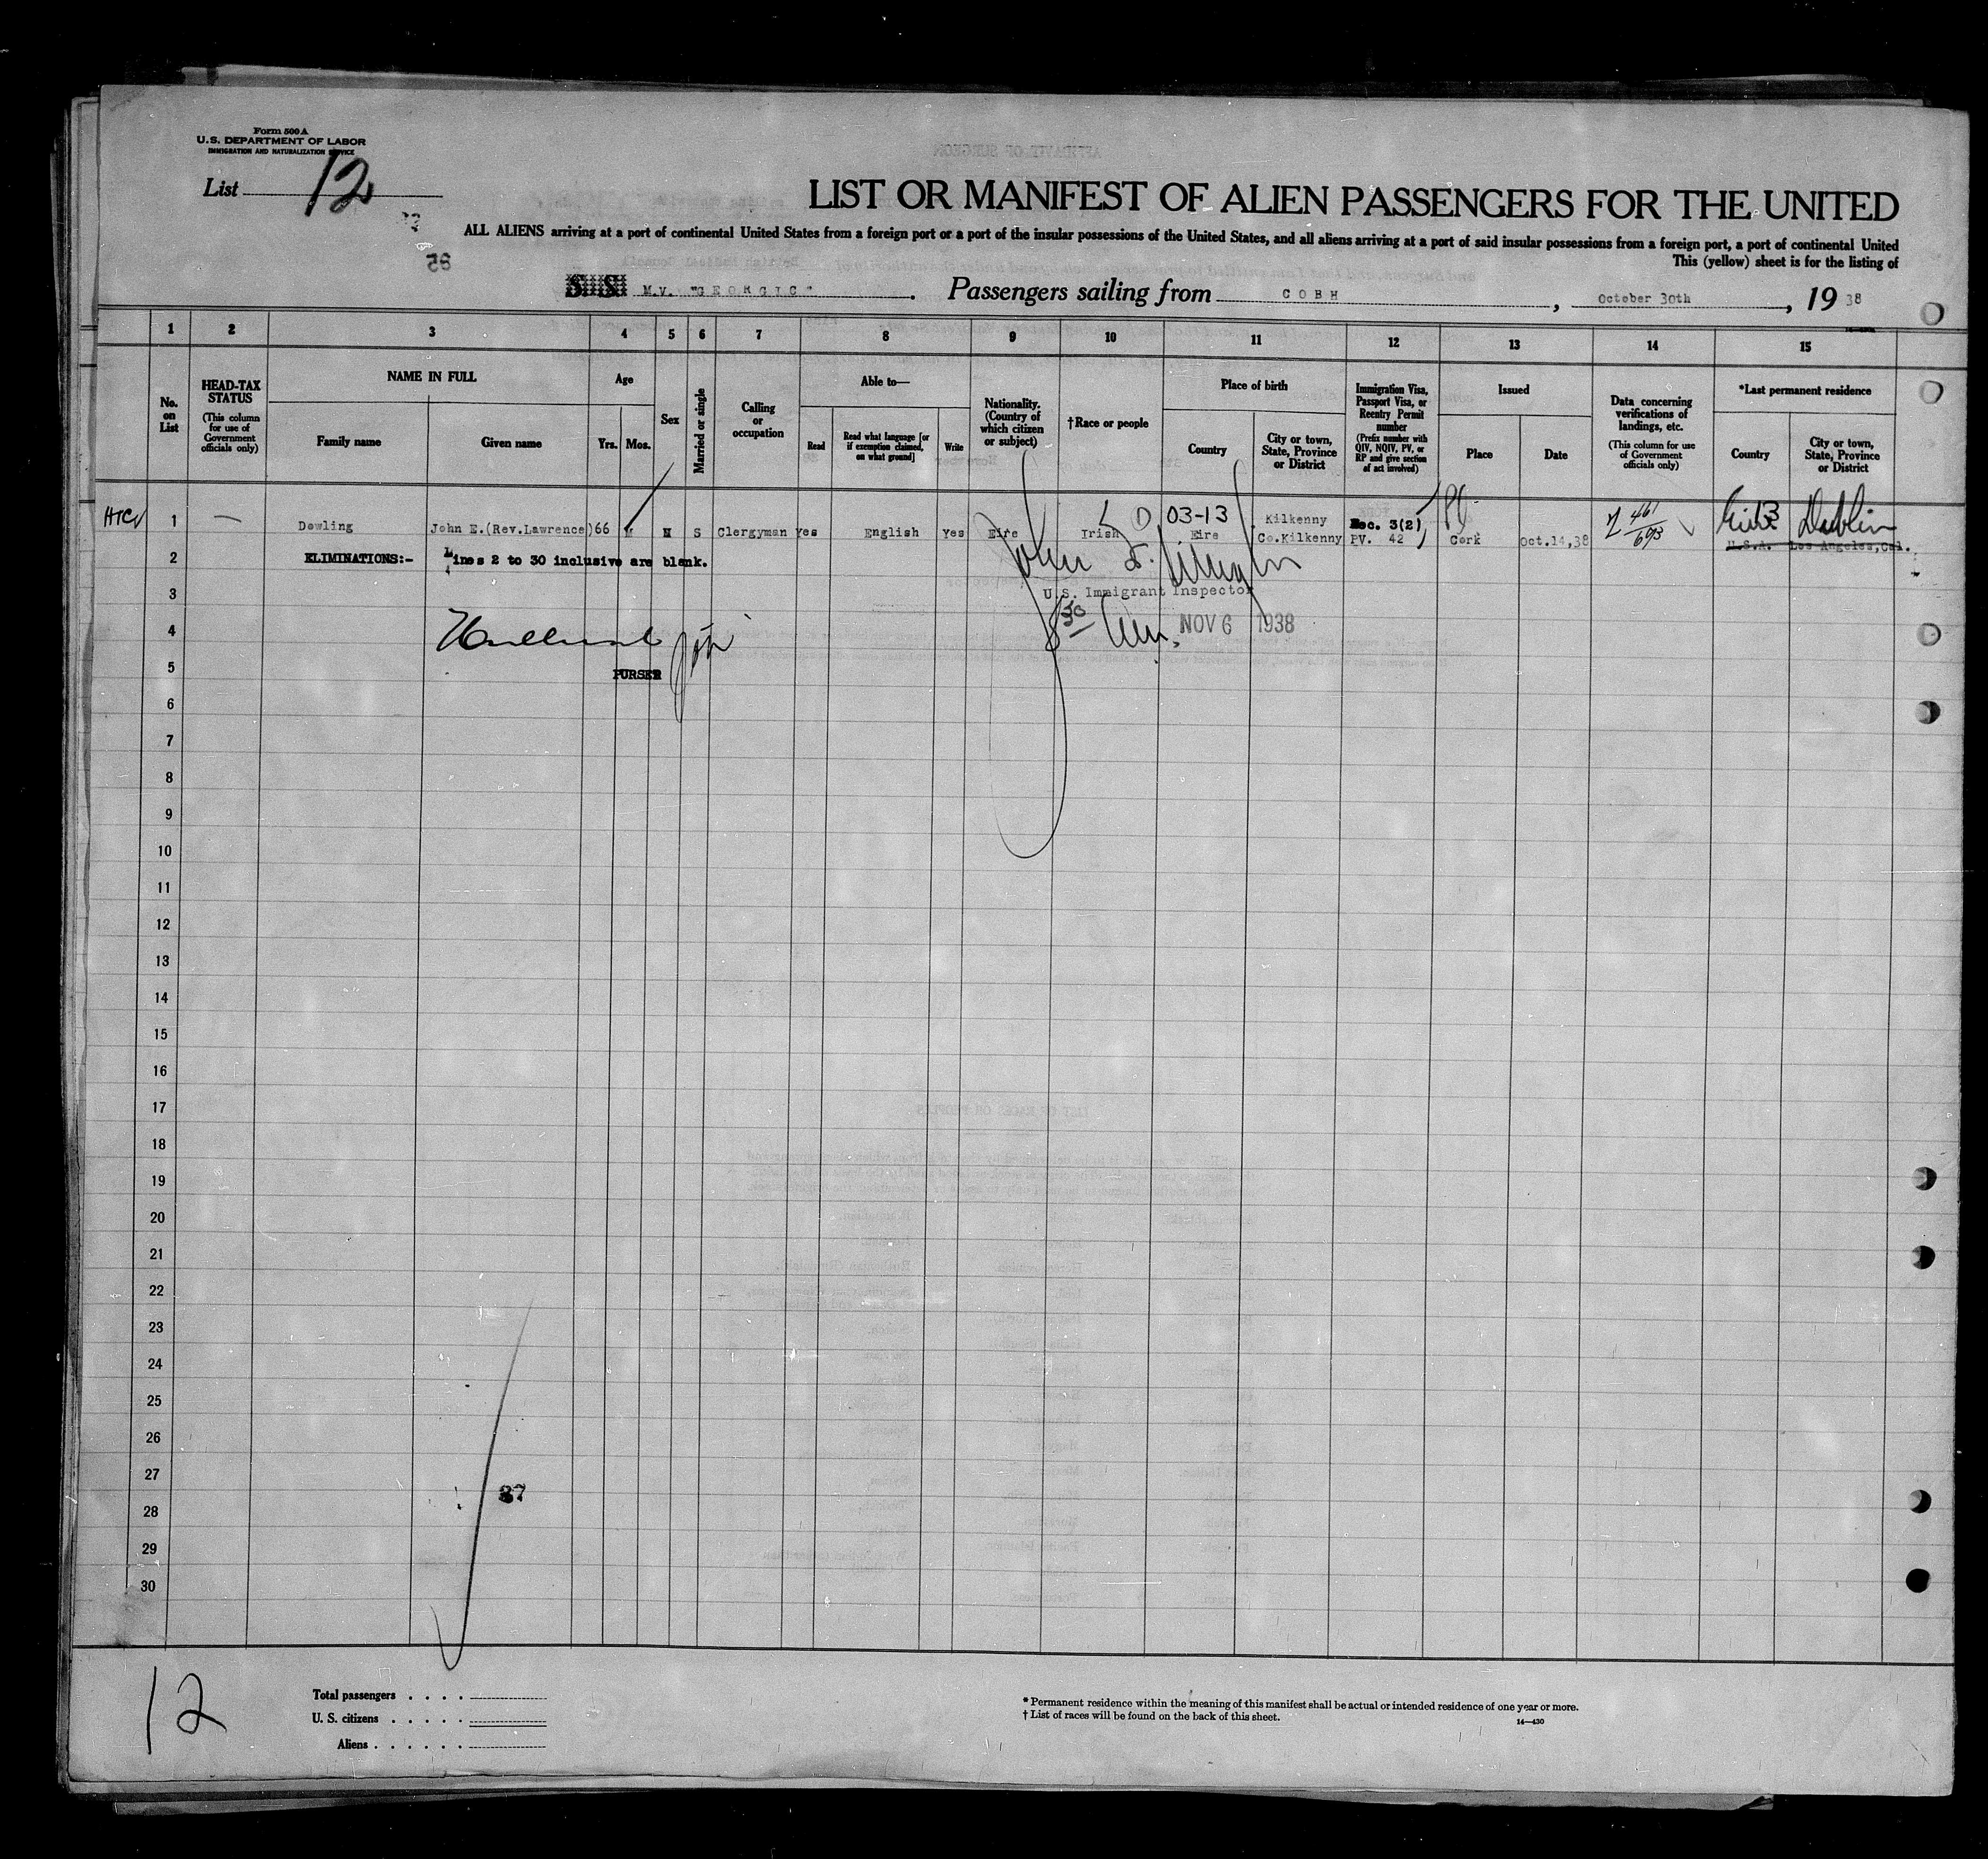 Form 500 A
U. S. DEPARTMENT OF LABOR
IMMIGRATION AND NATURALIZATION SERVICE
List 12
LIST OR MANIFEST OF ALIEN PASSENGERS FOR THE UNITED
ALL ALIENS arriving at a port of continental United States from a foreign port or a port of the insular possessions of the United States, and all aliens arriving at a port of said insular possessions from a foreign port, a port of continental United
This (yellow) sheet is for the listing of
S. S. M.V. "GEORGIC". Passengers sailing from COBH, October 30th, 19 38
1 2 3 4 5 6 7 8 9 10 11 12 13 14 15
No. on List
HEAD-TAX STATUS (This column for use of Government officials only)
NAME IN FULL
Family name
Given name
Age
Yrs. Mos.
Sex
Married or single
Calling or occupation
Able to—
Read
Read what language [or if exemption claimed, on what ground]
Write
Nationality. (Country of which citizen or subject)
†Race or people
Place of birth
Country
City or town, State, Province or District
Immigration Visa, Passport Visa, or Reentry Permit number (Prefix number with QIV, NQIV, PV, or RP and give section of act involved)
Issued
Place
Date
Data concerning verifications of landings, etc. (This column for use of Government officials only)
*Last permanent residence
Country
City or town, State, Province or District
03-13 Kilkenny Sec. 3(2) 461 Eire Dublin
1 — Dowling John E.(Rev.Lawrence) 66 M S Clergyman Yes English Yes Eire Irish Eire Co.Kilkenny PV. 42 Cork Oct.14,38 693 U.S.A. Los Angeles,Cal.
2 ELIMINATIONS:- Lines 2 to 30 inclusive are blank.
3 U.S. Immigrant Inspector
4 NOV 6 1938
5 PURSER
6
7
8
9
10
11
12
13
14
15
16
17
18
19
20
21
22
23
24
25
26
27
37
28
29
30
12
Total passengers . . . .
U. S. citizens . . . . .
Aliens . . . . . .
* Permanent residence within the meaning of this manifest shall be actual or intended residence of one year or more.
† List of races will be found on the back of this sheet.
14—430